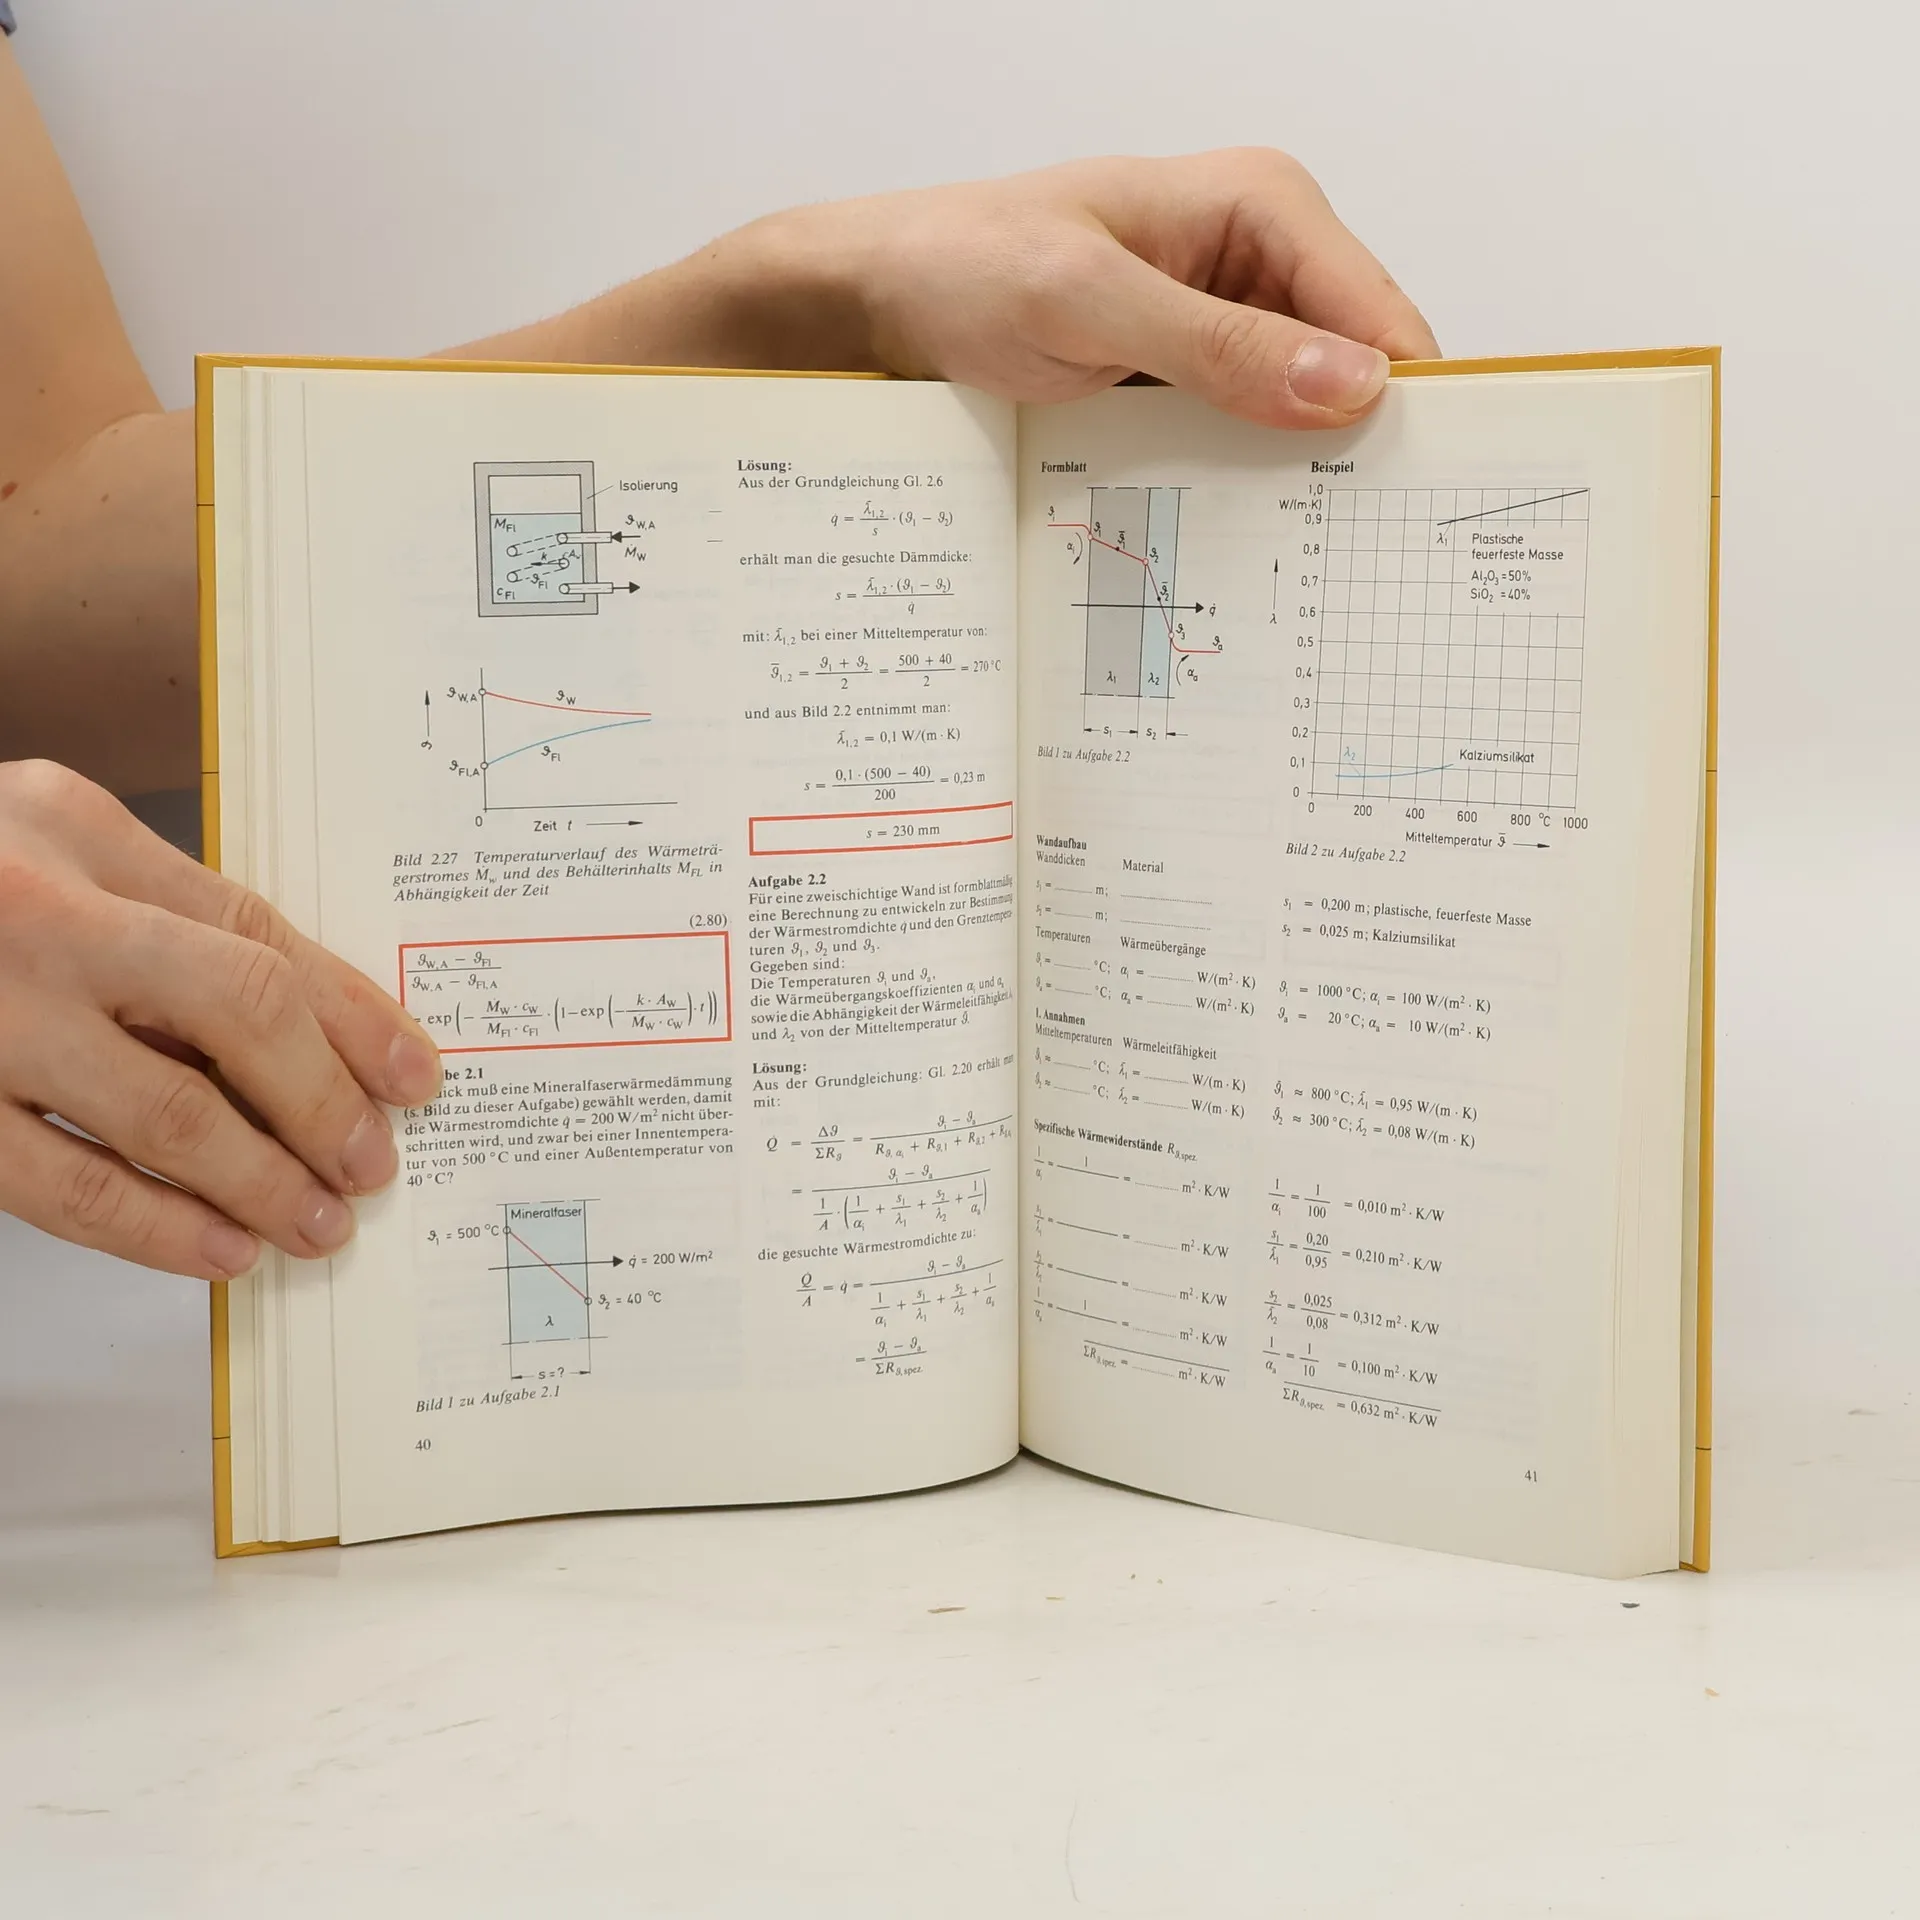 Isolierung
M_Fl
ϑ_W,A
Ṁ_W
k
A_w
ϑ_Fl
c_Fl
ϑ_W,A
ϑ_W
ϑ
ϑ_Fl
ϑ_Fl,A
0
Zeit t
Bild 2.27 Temperaturverlauf des Wärmeträ-
gerstromes Ṁ_w und des Behälterinhalts M_FL in
Abhängigkeit der Zeit
(2.80)
ϑ_W,A − ϑ_Fl
ϑ_W,A − ϑ_Fl,A
= exp (− Ṁ_W · c_W / M_Fl · c_Fl · (1−exp (− k · A_W / Ṁ_W · c_W) · t))
be 2.1
ick muß eine Mineralfaserwärmedämmung
(s. Bild zu dieser Aufgabe) gewählt werden, damit
die Wärmestromdichte q̇ = 200 W/m² nicht über-
schritten wird, und zwar bei einer Innentempera-
tur von 500 °C und einer Außentemperatur von
40 °C?
Mineralfaser
ϑ₁ = 500 °C
q̇ = 200 W/m²
ϑ₂ = 40 °C
λ
s = ?
Bild 1 zu Aufgabe 2.1
40
Lösung:
Aus der Grundgleichung Gl. 2.6
q̇ = λ̄₁,₂ / s · (ϑ₁ − ϑ₂)
erhält man die gesuchte Dämmdicke:
s = λ̄₁,₂ · (ϑ₁ − ϑ₂) / q̇
mit: λ̄₁,₂ bei einer Mitteltemperatur von:
ϑ̄₁,₂ = ϑ₁ + ϑ₂ / 2 = 500 + 40 / 2 = 270 °C
und aus Bild 2.2 entnimmt man:
λ̄₁,₂ = 0,1 W/(m · K)
s = 0,1 · (500 − 40) / 200 = 0,23 m
s = 230 mm
Aufgabe 2.2
Für eine zweischichtige Wand ist formblattmäßig
eine Berechnung zu entwickeln zur Bestimmung
der Wärmestromdichte q̇ und den Grenztempera-
turen ϑ₁, ϑ₂ und ϑ₃.
Gegeben sind:
Die Temperaturen ϑᵢ und ϑₐ,
die Wärmeübergangskoeffizienten αᵢ und αₐ
sowie die Abhängigkeit der Wärmeleitfähigkeit λ₁
und λ₂ von der Mitteltemperatur ϑ̄.
Lösung:
Aus der Grundgleichung: Gl. 2.20 erhält man
mit:
Q̇ = Δϑ / ΣR_ϑ = ϑᵢ − ϑₐ / R_ϑ,αi + R_ϑ,1 + R_ϑ,2 + R_ϑ,αa
= ϑᵢ − ϑₐ / 1/A · (1/αᵢ + s₁/λ̄₁ + s₂/λ̄₂ + 1/αₐ)
die gesuchte Wärmestromdichte zu:
Q̇/A = q̇ = ϑᵢ − ϑₐ / 1/αᵢ + s₁/λ̄₁ + s₂/λ̄₂ + 1/αₐ
= ϑᵢ − ϑₐ / ΣR_ϑ,spez.
Formblatt
ϑᵢ
ϑ₁
ϑ̄₁
ϑ₂
αᵢ
ϑ̄₂
q̇
ϑ₃
ϑₐ
λ₁
λ₂
αₐ
s₁
s₂
Bild 1 zu Aufgabe 2.2
Wandaufbau
Wanddicken Material
s₁ = ........ m; ................
s₂ = ........ m; ................
Temperaturen Wärmeübergänge
ϑᵢ = ........ °C; αᵢ = ........ W/(m² · K)
ϑₐ = ........ °C; αₐ = ........ W/(m² · K)
1. Annahmen
Mitteltemperaturen Wärmeleitfähigkeit
ϑ̄₁ = ........ °C; λ̄₁ = ........ W/(m · K)
ϑ̄₂ = ........ °C; λ̄₂ = ........ W/(m · K)
Spezifische Wärmewiderstände R_ϑ,spez.
1/αᵢ = 1/ = ........ m² · K/W
s₁/λ̄₁ = = ........ m² · K/W
s₂/λ̄₂ = = ........ m² · K/W
1/αₐ = 1/ = ........ m² · K/W
ΣR_ϑ,spez. = ........ m² · K/W
Beispiel
1,0
W/(m·K)
0,9
0,8
0,7
0,6
0,5
0,4
0,3
0,2
0,1
0
λ
λ₁
Plastische
feuerfeste Masse
Al₂O₃ = 50%
SiO₂ = 40%
λ₂
Kalziumsilikat
0 200 400 600 800 °C 1000
Mitteltemperatur ϑ̄
Bild 2 zu Aufgabe 2.2
s₁ = 0,200 m; plastische, feuerfeste Masse
s₂ = 0,025 m; Kalziumsilikat
ϑᵢ = 1000 °C; αᵢ = 100 W/(m² · K)
ϑₐ = 20 °C; αₐ = 10 W/(m² · K)
ϑ̄₁ ≈ 800 °C; λ̄₁ = 0,95 W/(m · K)
ϑ̄₂ ≈ 300 °C; λ̄₂ = 0,08 W/(m · K)
1/αᵢ = 1/100 = 0,010 m² · K/W
s₁/λ̄₁ = 0,20/0,95 = 0,210 m² · K/W
s₂/λ̄₂ = 0,025/0,08 = 0,312 m² · K/W
1/αₐ = 1/10 = 0,100 m² · K/W
ΣR_ϑ,spez. = 0,632 m² · K/W
41